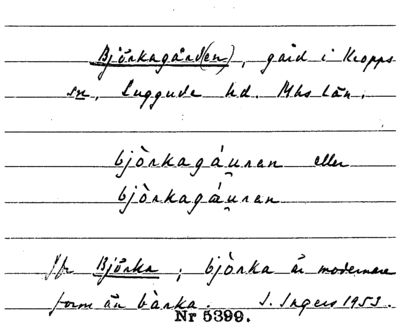 Björkagård(en), gård i Kropps
sn, Luggude hd. Mhs län.
bjòrkagáu̯ren eller
bjòrkagáu̯ren
Jfr Björka; bjòrka är modernare
form än bàrka. I. Ingers 1953.
Nr 5399.